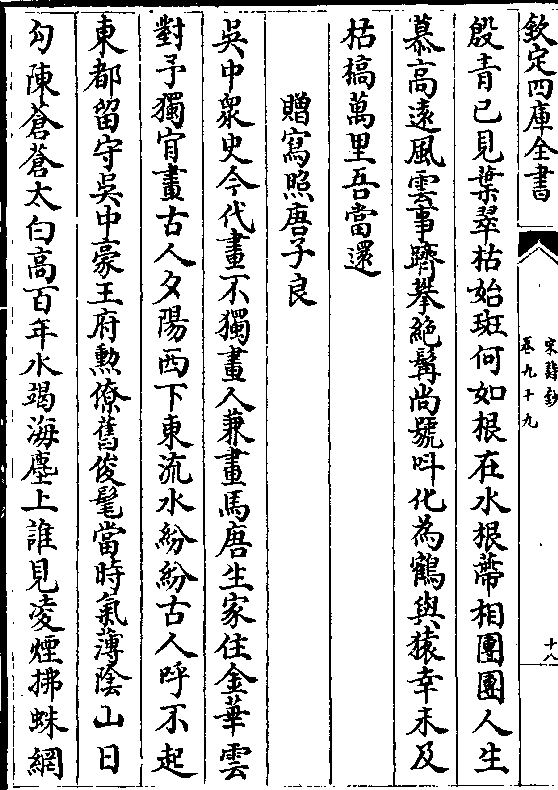 欽定四庫全書
宋詩鈔
卷九十九
十八
殷青已見葉翠枯始斑何如根在水根蔕相團團人生
慕高遠風雲事躋攀絶髯尚號呌化為鶴與猿幸未及
枯槁萬里吾當還
贈寫照唐子良
吳中衆史今代畫不獨畫人兼畫馬唐生家住金華雲
對予獨肎畫古人夕陽西下東流水紛紛古人呼不起
東都留守吳中豪王府勲僚舊俊髦當時氣薄陰山日
勾陳蒼蒼太白高百年水竭海塵上誰見凌煙拂蛛網